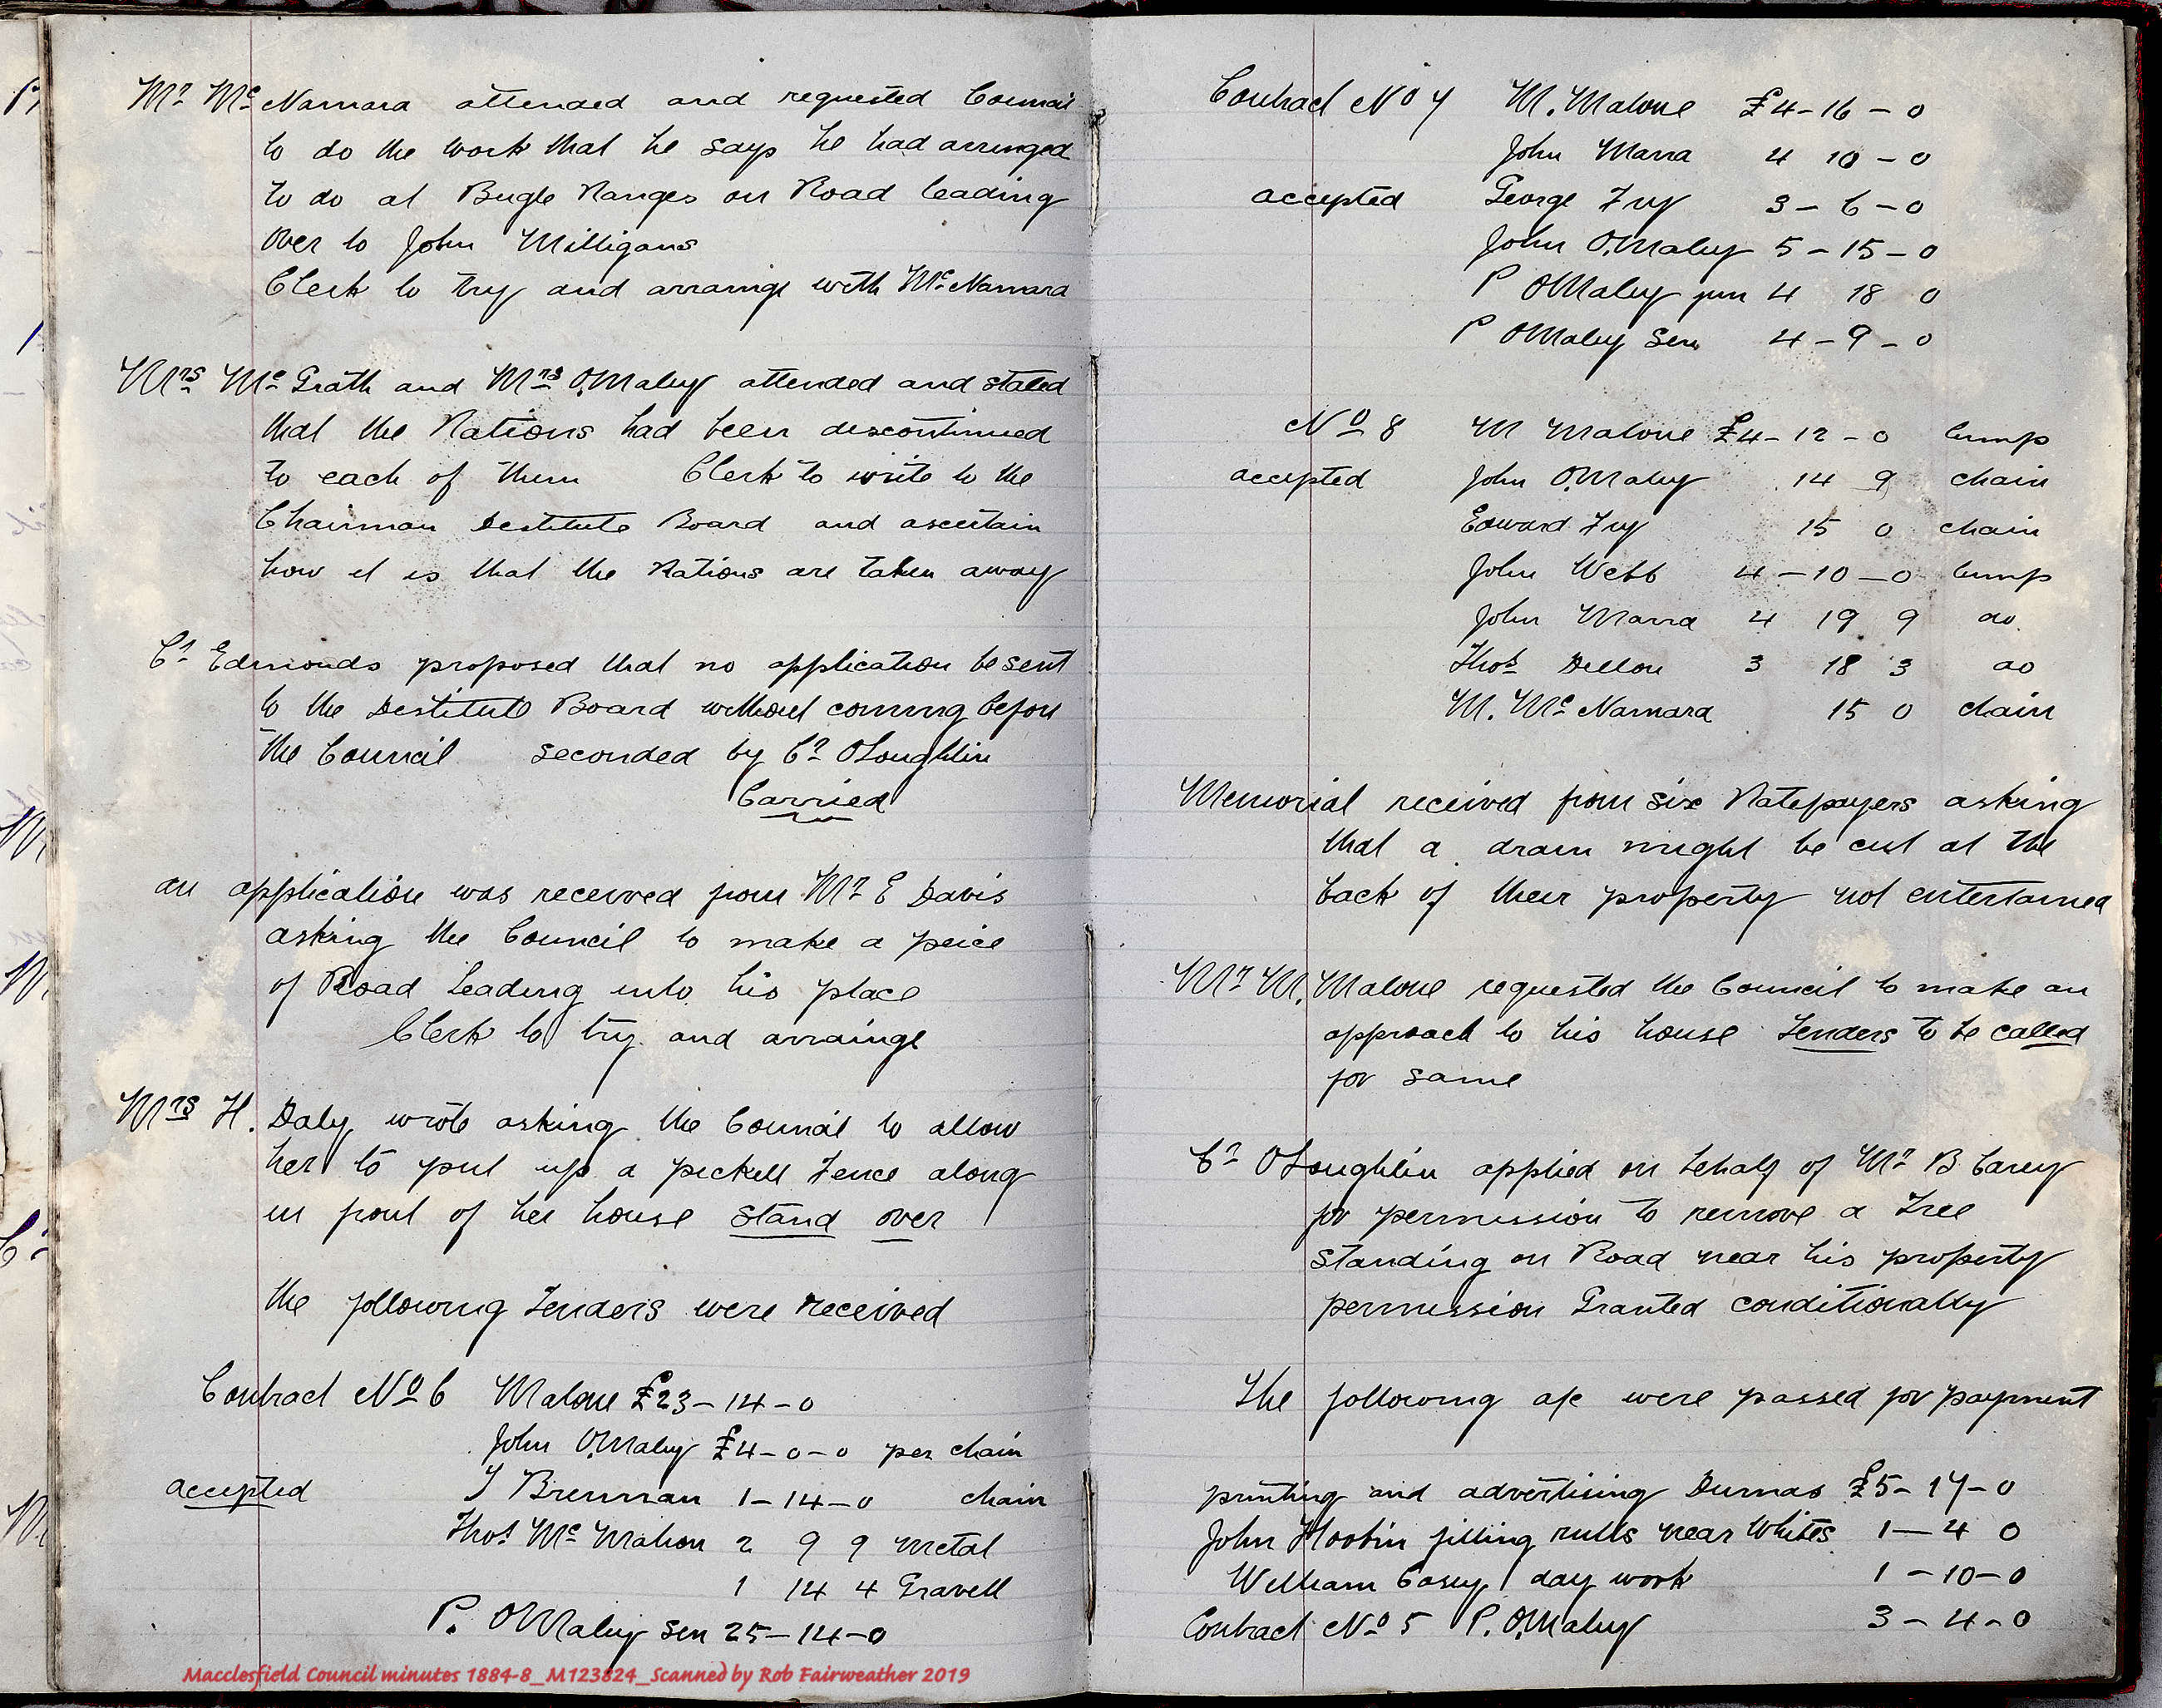 Mr McNamara attended and requested Council
to do the work that he says he had arrainged
to do at Bugle Ranges on Road leading
over to John Milligans
Clerk to try and arrainge with McNamara
Mrs McGrath and Mrs O.Maley attended and stated
that the Rations had been descontinued
to each of them Clerk to write to the
Chairman Destitute Board and ascertain
how it is that the Rations are taken away
Cr Edmonds proposed that no application be sent
to the Destitute Board without coming before
the Council seconded by Cr OLoughlin
Carried
an application was received from Mr E Davis
asking the Council to make a peice
of Road Leading into his place
Clerk to try and arrainge
Mrs H. Daly wrote asking the Council to allow
her to put up a pickett Fence along
in front of her house stand over
the following Tenders were received
Contract No 6 Malone £23-14-0
John O.Maley £4-0-0 per chain
accepted T Brennan 1-14-0 chain
Thos McMahon 2 9 9 metal
1 14 4 Gravell
P. OMaley sen 25-14-0
Contract No 7 M. Malone £4-16-0
John Marra 4 10-0
accepted George Fry 3-6-0
John O.Maley 5-15-0
P OMaley jun 4 18 0
P OMaley Sen 4-9-0
No 8 M Malone £4-12-0 lump
accepted John O.Maley 14 9 chain
Edward Fry 15 0 chain
John Webb 4-10-0 lump
John Marra 4 19 9 do
Thos Dillon 3 18 3 do
M. McNamara 15 0 chain
Memorial received from six Ratepayers asking
that a drain might be cut at the
back of their property not entertained
Mr M. Malone requested the Council to make an
approach to his house Tenders to be called
for same
Cr OLoughlin applied on behalf of Mr B Carey
for permission to remove a Tree
standing on Road near his property
permission Granted conditionally
The following a/c were passed for payment
printing and advertising Dumas £5-17-0
John Hoobin filling rutts near Whites 1-4 0
William Casey day work 1-10-0
Contract No 5 P. O.Maley 3-4-0
Macclesfield Council minutes 1884-8_M123824_Scanned by Rob Fairweather 2019